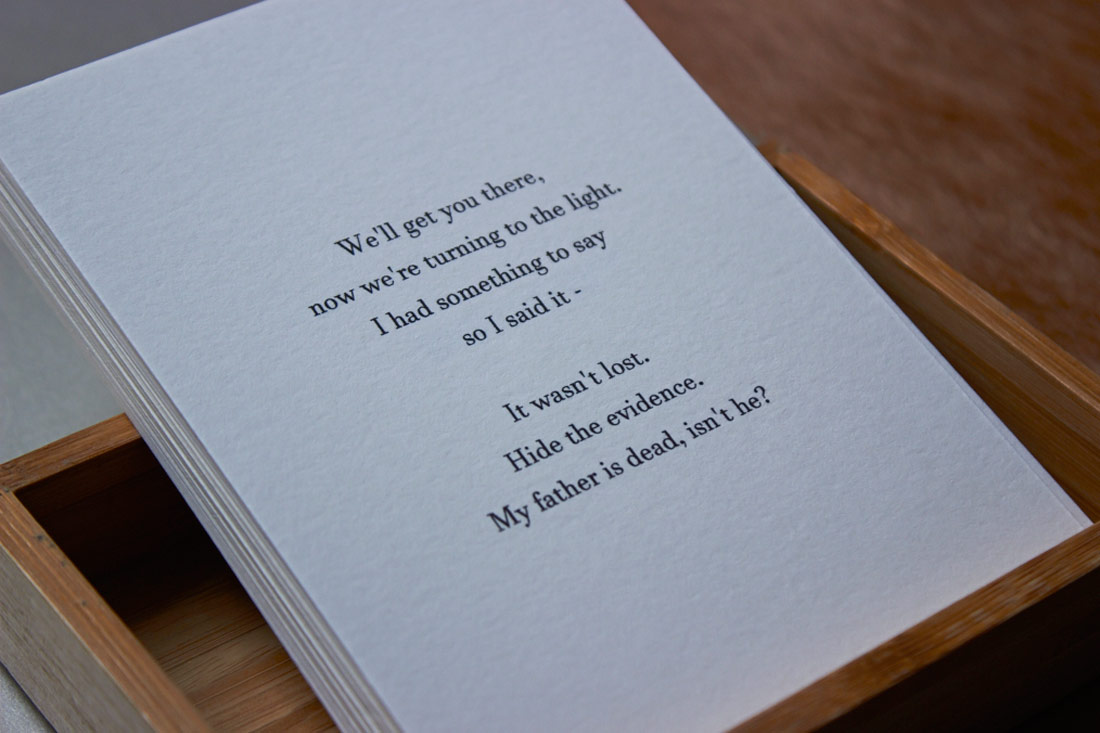 We'll get you there,
now we're turning to the light.
I had something to say
so I said it -
It wasn't lost.
Hide the evidence.
My father is dead, isn't he?